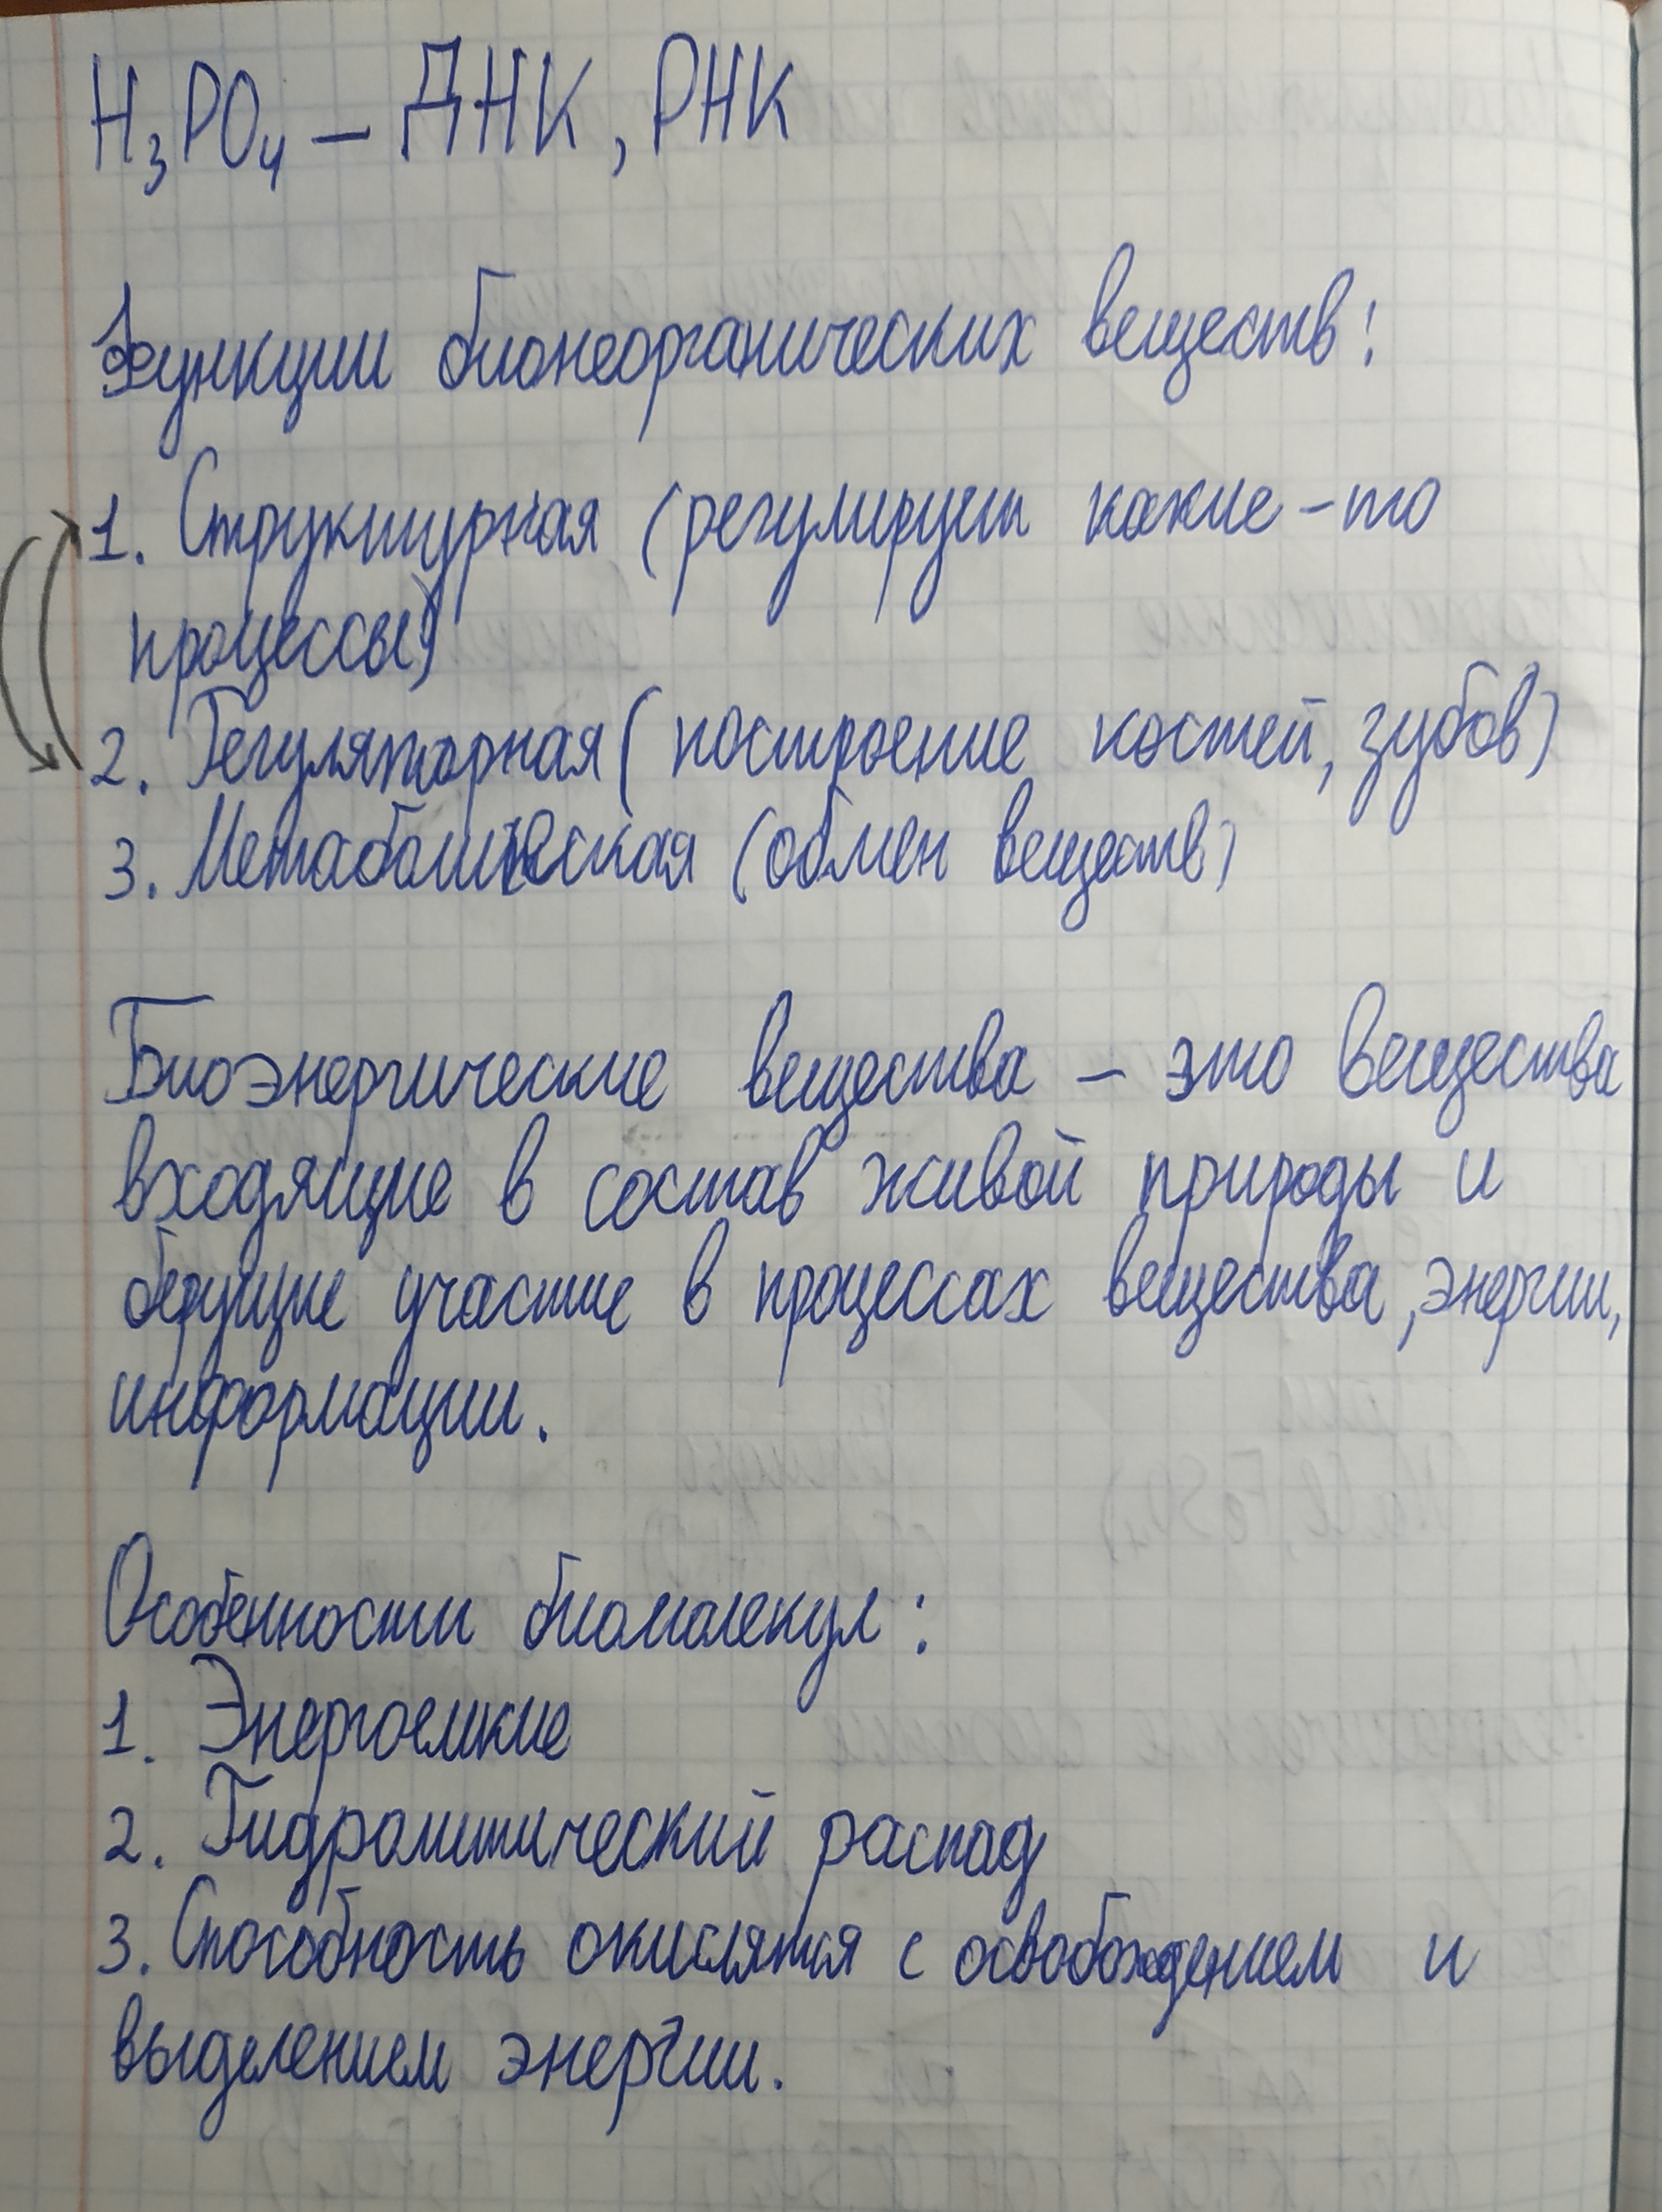 H₃PO₄ – ДНК, РНК
Функции бионеорганических веществ:
1. Структурная (регулирует какие-то
процессы)
2. Регуляторная (построение костей, зубов)
3. Метаболическая (обмен веществ)
Биоэнергические вещества – это вещества
входящие в состав живой природы и
берущие участие в процессах вещества, энергии,
информации.
Особенности биомолекул:
1. Энергоемкие
2. Гидролитический распад
3. Способность окислятся с освобождением и
выделением энергии.